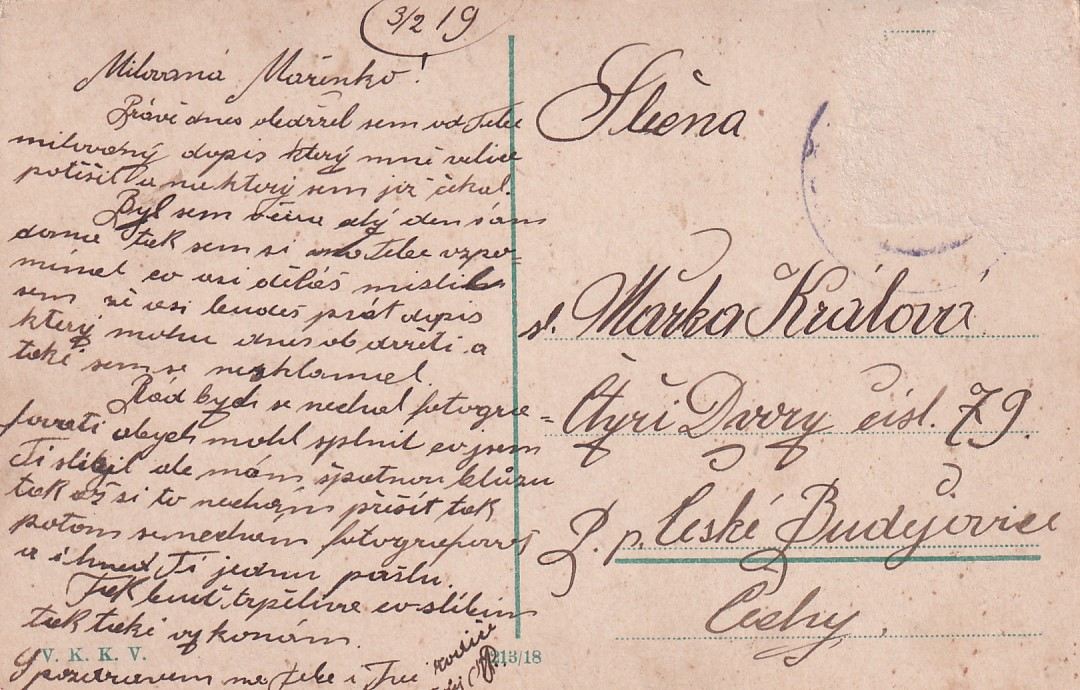 3/2 19
Milovaná Mařenko!
Právě dnes obdržel sem od Tebe
milovaný dopis který mně velice
potěšil a na který sem již čekal.
Byl sem včera celý den sám
doma tak sem si na Tebe vzpo=
mínal co asi děláš myslil
sem že asi budeš psát dopis
který mohu dnes obdržeti a
také sem se nezklamal.
Rád bych se nechal fotogra=
fovati abych mohl splnit co jsem
Ti slíbil ale mám špatnou blůzu
tak až si to nechám přešít tak
potom se nechám
a ihned Ti jednu pošlu.
Tak buď trpělivá co slíbím
tak také vykonám.
S pozdravem na Tebe i Tvé rodiče
V. K. K. V.
213/18
Slečna
sl. Mařka Králová
Čtyři Dvory čísl. 79.
P. p. České Budějovice
Čechy.